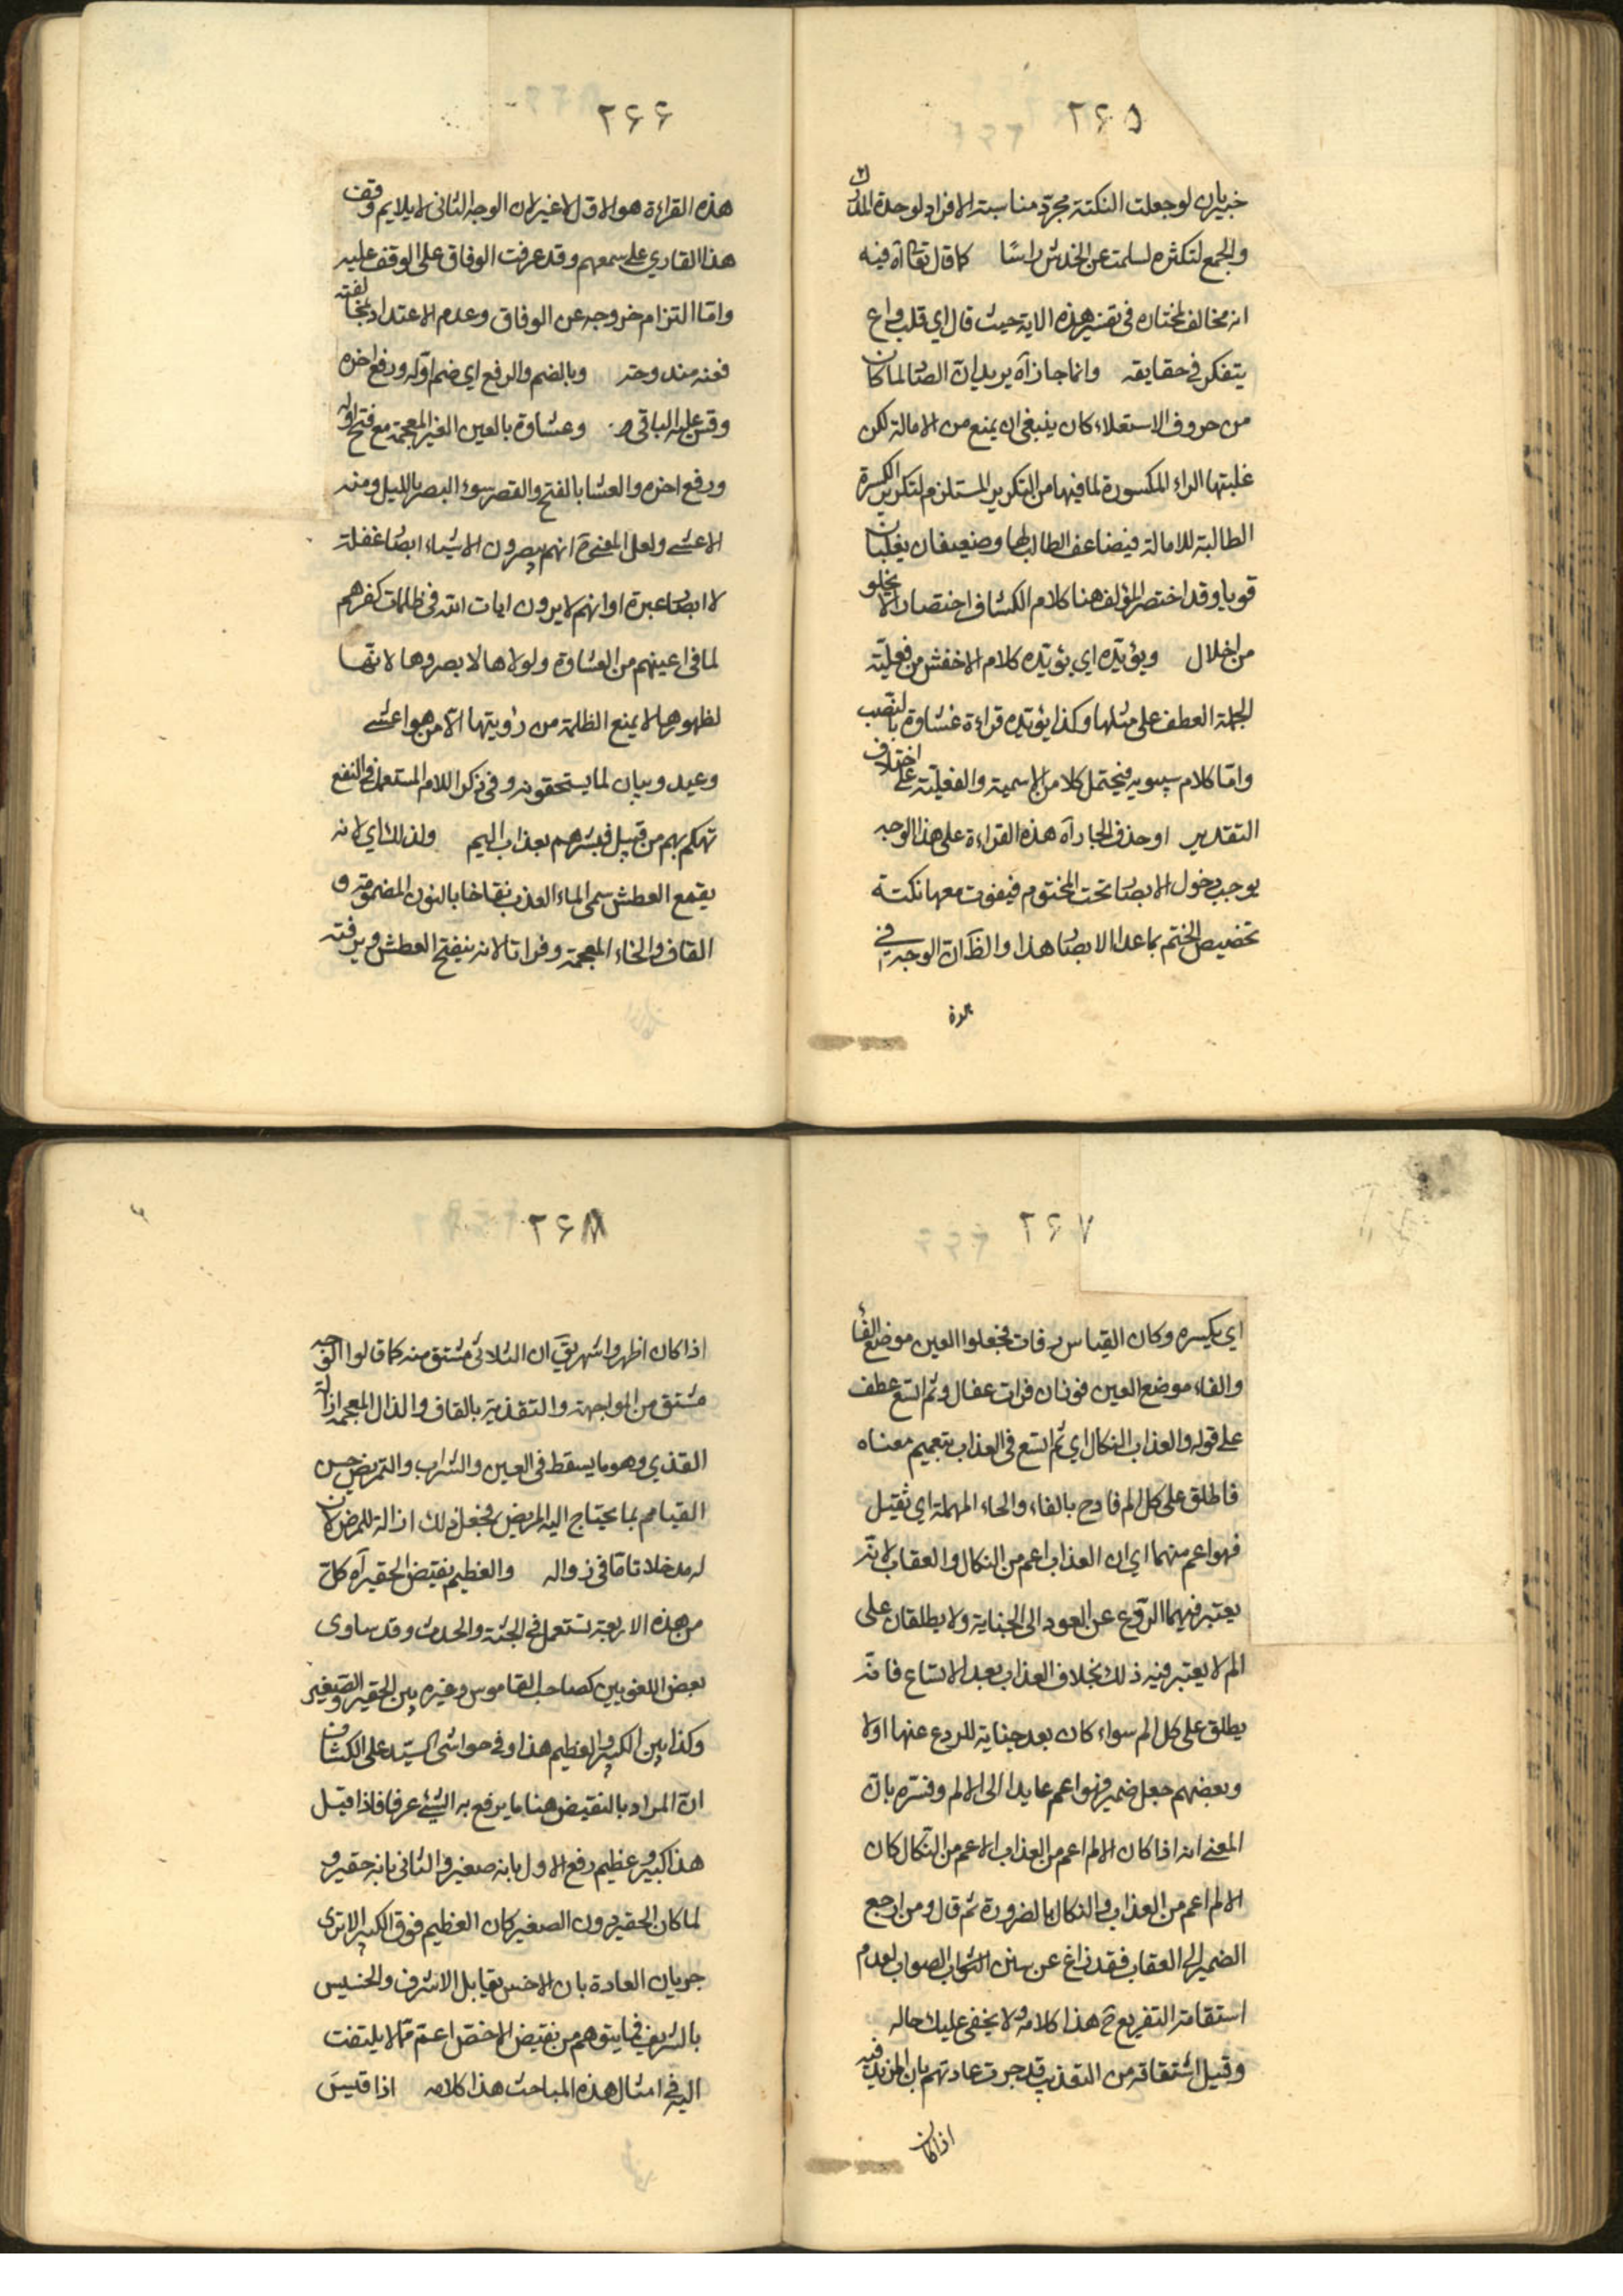 ٢٦٥
خبير بان لو جعلت النكتة مجرد مناسبة الافراد لوحدة المدرك
والجمع لتكثره لسلمت عن الخدش راسًا كما قال تعا آه فيه
انه مخالف لمختاره في تفسير هذه الاية حيث قال اي قلب واع
يتفكر في حقايقه وانما جاز آه يريد ان الصاد لما كان
من حروف الاستعلاء كان ينبغي ان يمنع من الامالة لكن
غلبتها الراء المكسورة لما فيها من التكرير المستلزم لتكرير الكسرة
الطالبة للامالة فيضاعف الطالب لها وضعيفان يغلبان
قويا وقد اختصر المؤلف هنا كلام الكشاف اختصارا لا يخلو
من اخلال ويؤيده اي يؤيده كلام الاخفش من فعلية
الجملة العطف على مثلها وكذا يؤيده قراءة غشاوة بالنصب
واما كلام سيبويه فيحتمل كلا من الاسمية والفعلية على اختلاف
التقدير او حذف الجار آه هذه القراءة على هذا الوجه
يوجب دخول الابصار تحت المختوم فيفوت معها نكتة
تخصيص الختم بما عدا الابصار هذا والظ ان الوجه في
هذه
٢٦٦
هذه القراءة هو الاول لا غير لان الوجه الثاني لا يلايم وقف
هذا القاري على سمعهم وقد عرفت الوفاق على الوقف عليه
واما التزام خروجه عن الوفاق وعدم الاعتداد بمخالفته
فعنه مندوحة وبالضم والرفع اي ضم اوله ورفع اخره
وقس عليه البواقي وعشاوة بالعين الغير المعجمة مع فتح اوله
ورفع اخره والعشا بالفتح والقصر سوء البصر بالليل ومنه
الاعشى ولعل المعنى ح انهم يبصرون الاشياء ابصار غفلة
لا ابصار عبرة او انهم لا يرون ايات الله في ظلمات كفرهم
لما في اعينهم من العشاوة ولولاها لابصروها لانها
لظهورها لا يمنع الظلمة من رؤيتها الا من هو اعشى
وعيد وبيان لما يستحقونه وفي ذكر اللام المستعمل في النفع
تهكم بهم من قبيل فبشرهم بعذاب اليم ولذلك اي لانه
يقمع العطش سمى الماء العذب نقاخا بالنون المضمومة و
القاف والخاء المعجمة وفراتا لانه ينفتح العطش ويرفته
٢٦٧
اي يكسره وكان القياس رفات فجعلوا العين موضع الفاء
والفاء موضع العين فوزان فرات عفال وثم اتسع عطف
على قوله والعذاب النكال اي ثم اتسع في العذاب بتعميم معناه
فاطلق على كل الم فادح بالفاء والحاء المهملة اي ثقيل
فهو اعم منهما اي ان العذاب اعم من النكال والعقاب لانه
يعتبر فيهما الردع عن العود الى الجناية ولا يطلقان على
الم لا يعتبر فيه ذلك بخلاف العذاب بعد الاتساع فانه
يطلق على كل الم سواء كان بعد جناية للردع عنها اولا
وبعضهم جعل ضمير فهو اعم عايدا الى الالم وفسره بان
المعنى انه اذا كان الالم اعم من العذاب الاعم من النكال كان
الالم اعم من العذاب والنكال بالضرورة ثم قال ومن ارجع
الضمير الى العقاب فقد زاغ عن سنن الصواب لعدم
استقامة التفريع ح هذا كلامه ولا يخفى عليك حاله
وقيل اشتقاقه من التعذيب قد جرت عادتهم بان المزيد فيه
اذا كان
٢٦٨
اذا كان اظهر واشهر يق ان الثلاثي مشتق منه كما قالوا الوجه
مشتق من المواجهة والتقذية بالقاف والذال المعجمة ازالة
القذي وهو ما يسقط في العين والشراب والتمريض حسن
القيام بما يحتاج اليه المريض فجعل ذلك ازالة للمرض لان
له مدخلا تاما في زواله والعظيم نقيض الحقير آه كل
من هذه الاربعة تستعمل في الجثة والحدث وقد ساوى
بعض اللغويين كصاحب القاموس وغيره بين الحقير والصغير
وكذا بين الكبير والعظيم هذا وفي حواشي السيد على الكشاف
ان المراد بالنقيض هنا ما يرفع به الشئ عرفا فاذا قيل
هذا كبير وعظيم رفع الاول بانه صغير والثاني بانه حقير و
لما كان الحقير دون الصغير كان العظيم فوق الكبير الا ترى
جريان العادة بان الاخس يقابل الاشرف والخسيس
بالشريف فما يتوهم من نقيض الاخص اعم مما لا يلتفت
اليه في امثال هذه المباحث هذا كلامه اذا قيس